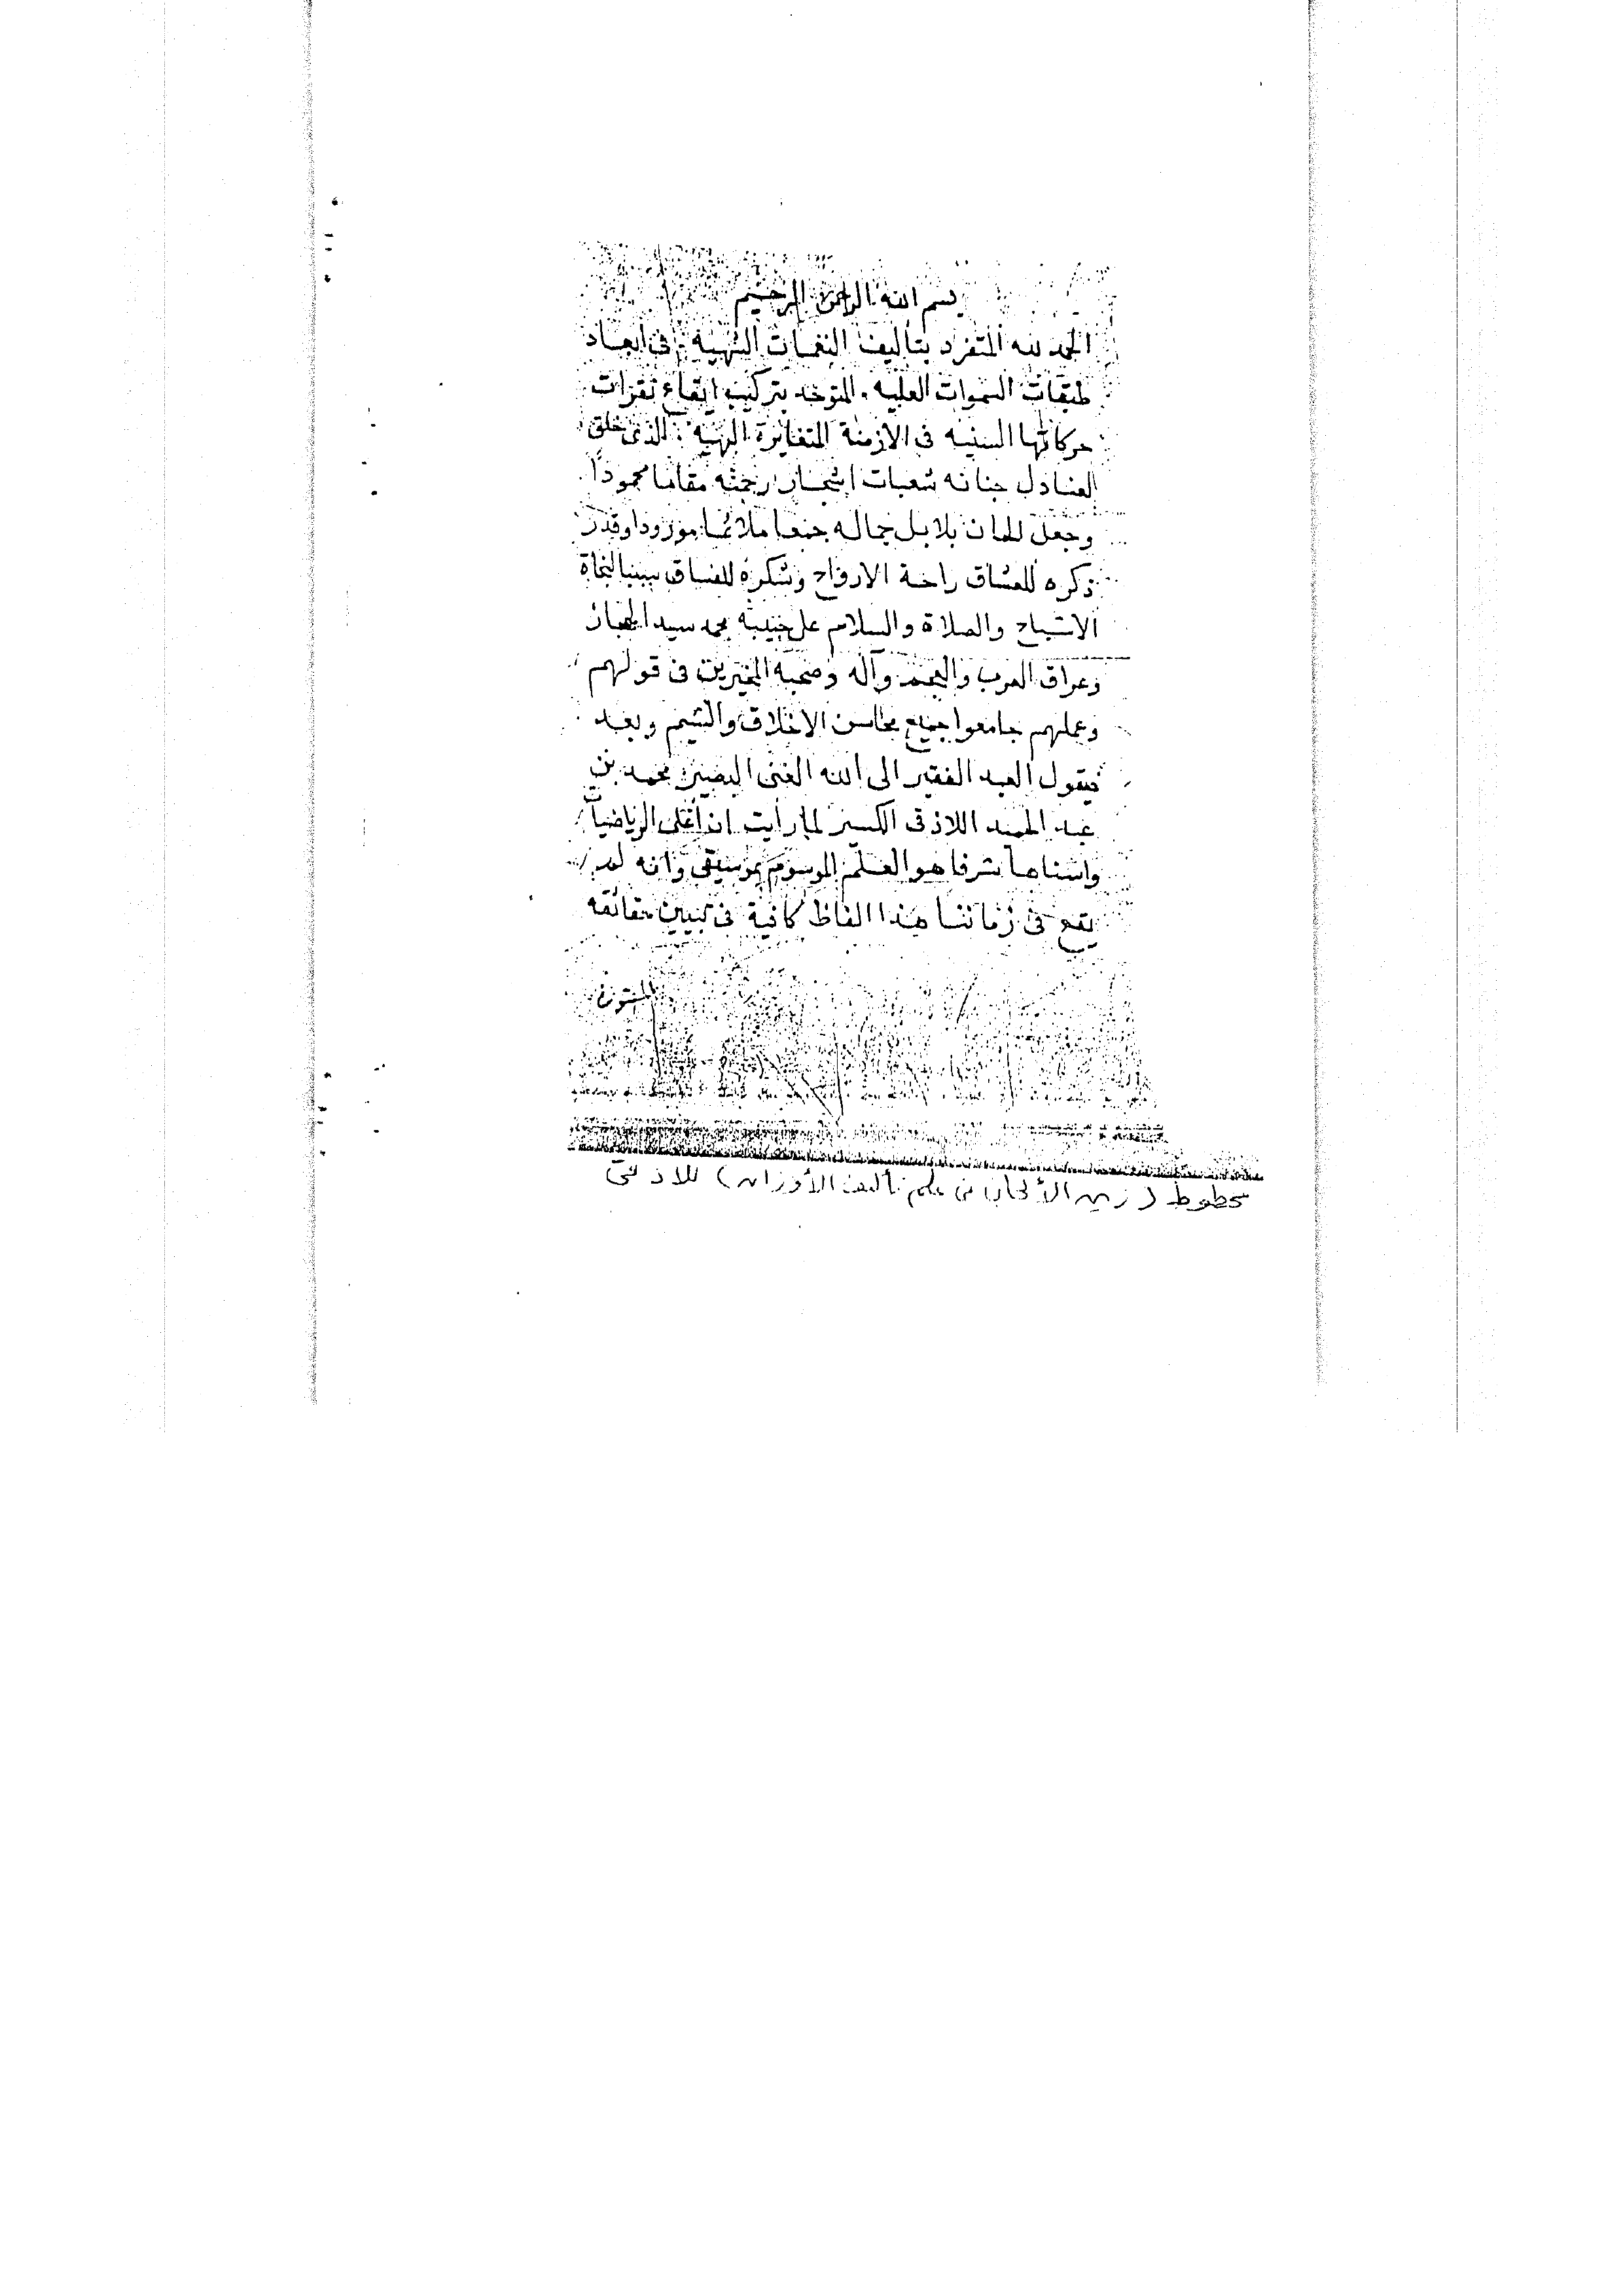 بسم الله الرحمن الرحيم
الحمد لله المتفرد بتاليف النغمات الشهية فى ابعاد
طبقات السموات العلية . المتوحد بتركيب ايقاع نقرات
حركاتها السنيه فى الازمنة المتغايرة البهية . الذى خلق
لعنادل جنانه شعبات اشجار رحمته مقاما محمودًا
وجعل لالحان بلابل جماله جمعا ملائما مورودا وقدر
ذكره للعشاق راحة الارواح وشكره للفساق سببا لنجاة
الاشباح والصلاة والسلام على حبيبه محمد سيد الحجاز
وعراق العرب والعجم وآله وصحبه المخيرين فى قولهم
وعملهم جامعوا جميع محاسن الاخلاق والشيم وبعد
فيقول العبد الفقير الى الله الغنى البصير محمد بن
عبد الحميد اللاذقى الكسير لما رأيت ان أعلى الرياضيات
واسناها شرفا هو العلم الموسوم بموسيقى وانه لم
يقع فى زماننا هذا الفاظ كافية فى تبيين حقائقه
المتون
مخطوط ( زين الألحان فى علم تأليف الأوزان ) للاذقى